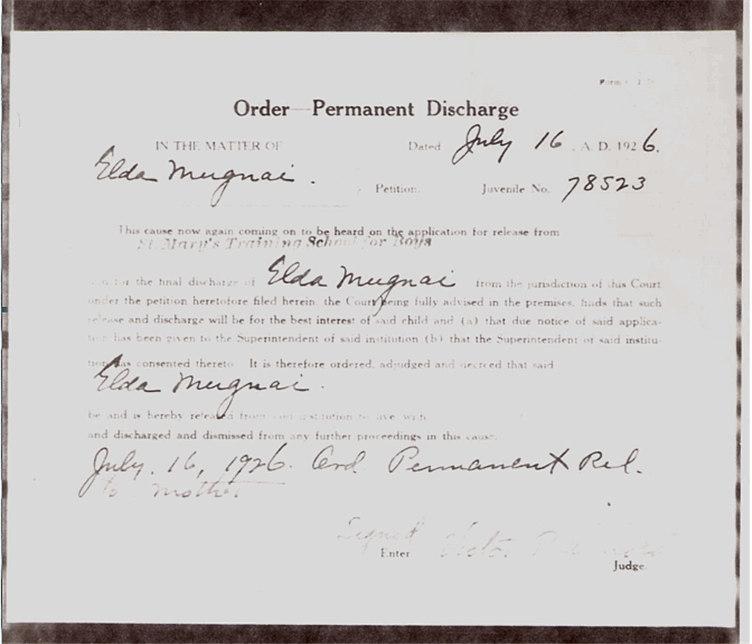 Order Permanent Discharge
IN THE MATTER OF
Dated July 16, A. D. 1926.
Elda Mugnai.
Petition.
Juvenile No. 78523
This cause now again coming on to be heard on the application for release from
St. Mary's Training School for Boys
for the final discharge of Elda Mugnai from the jurisdiction of this Court
under the petition heretofore filed herein, the Court being fully advised in the premises, finds that such
release and discharge will be for the best interest of said child and (a) that due notice of said applica-
tion has been given to the Superintendent of said institution (b) that the Superintendent of said institu-
tion has consented thereto. It is therefore ordered, adjudged and decreed that said
Elda Mugnai.
be and is hereby released from said institution to live with
and discharged and dismissed from any further proceedings in this cause.
July. 16, 1926. Ord. Permanent Rel.
to Mother
Signed
Enter
Judge.